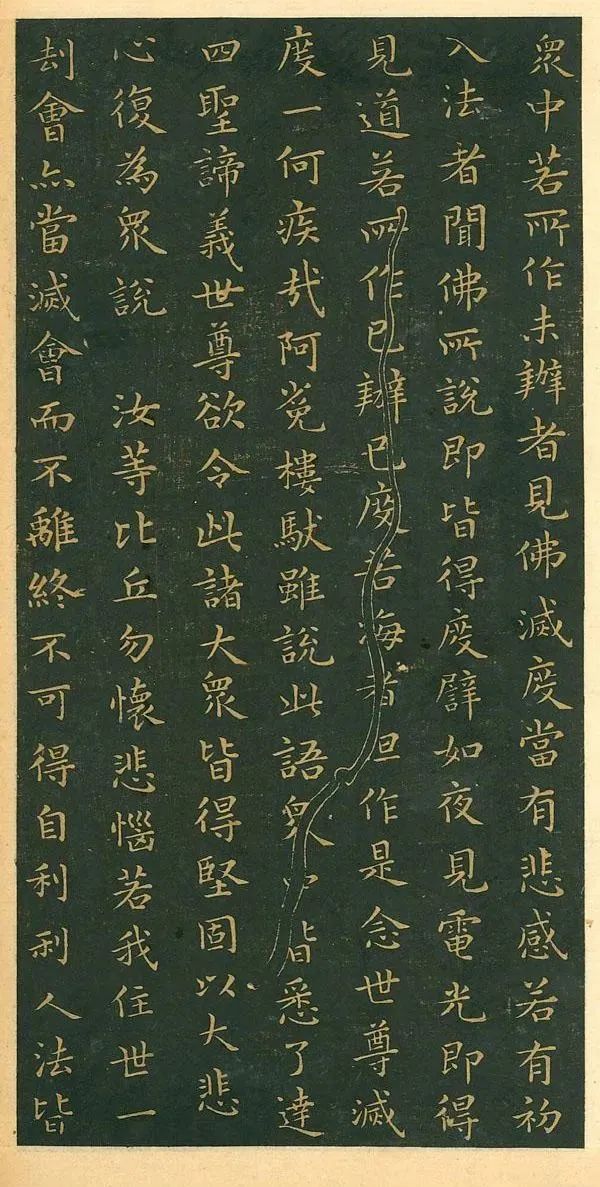 衆中若所作未辦者見佛滅度當有悲感若有初
入法者聞佛所說即皆得度譬如夜見電光即得
見道若所作已辦已度苦海者但作是念世尊滅
度一何疾哉阿㝹樓馱雖說此語衆中皆悉了達
四聖諦義世尊欲令此諸大衆皆得堅固以大悲
心復為衆說 汝等比丘勿懷悲惱若我住世一
劫會亦當滅會而不離終不可得自利利人法皆